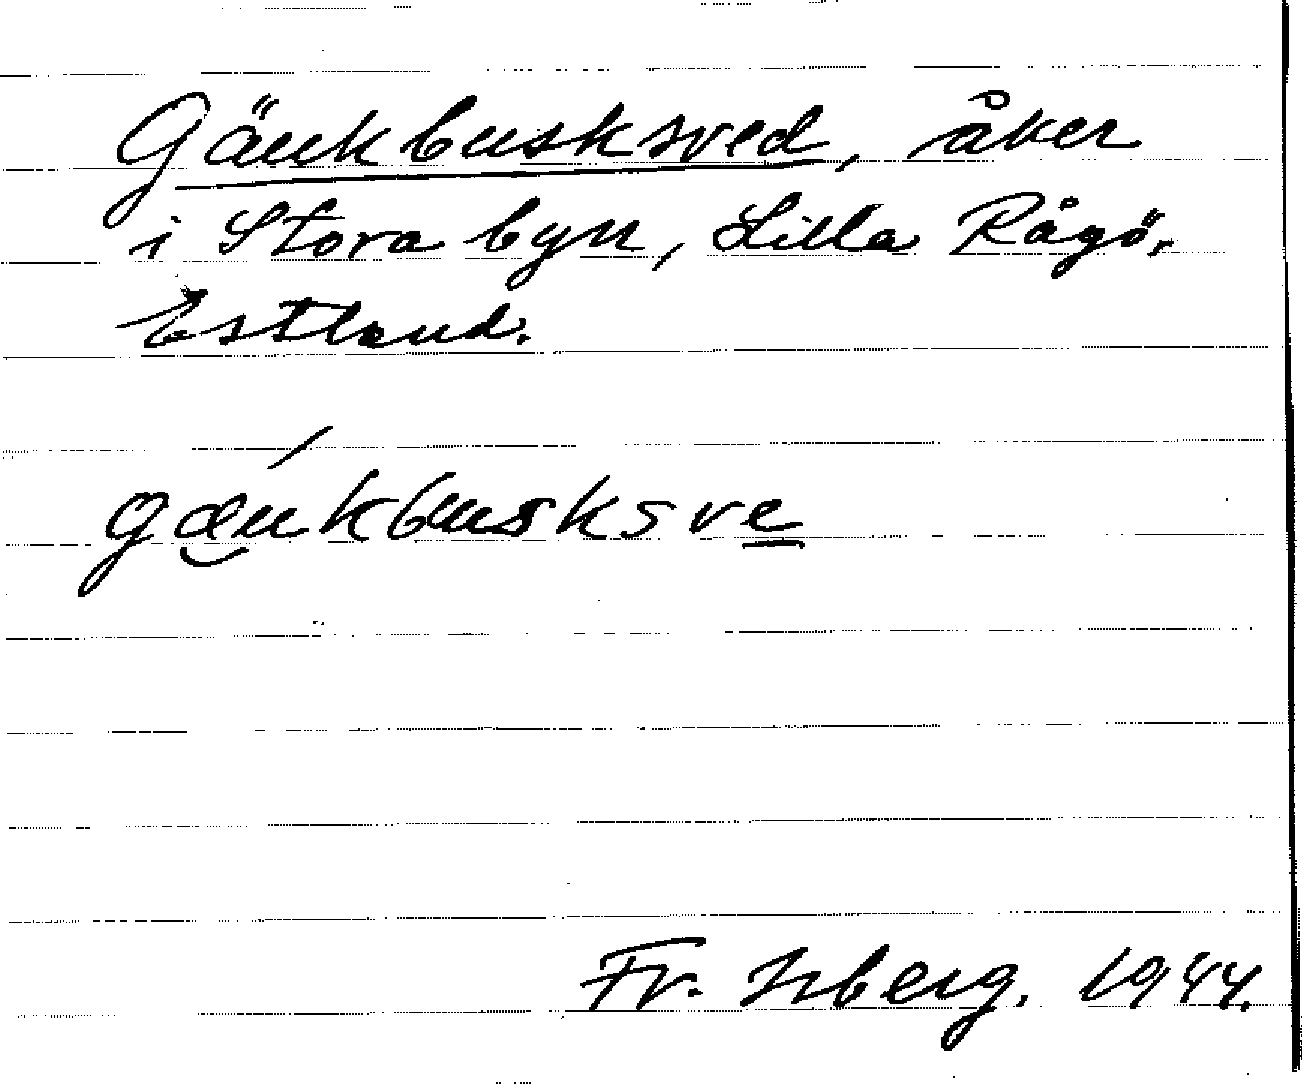 Gäukbusksved, åker
i Stora byn, Lilla Rågö,
Estland.
gæukbusksve
Fr. Isberg. 1944.